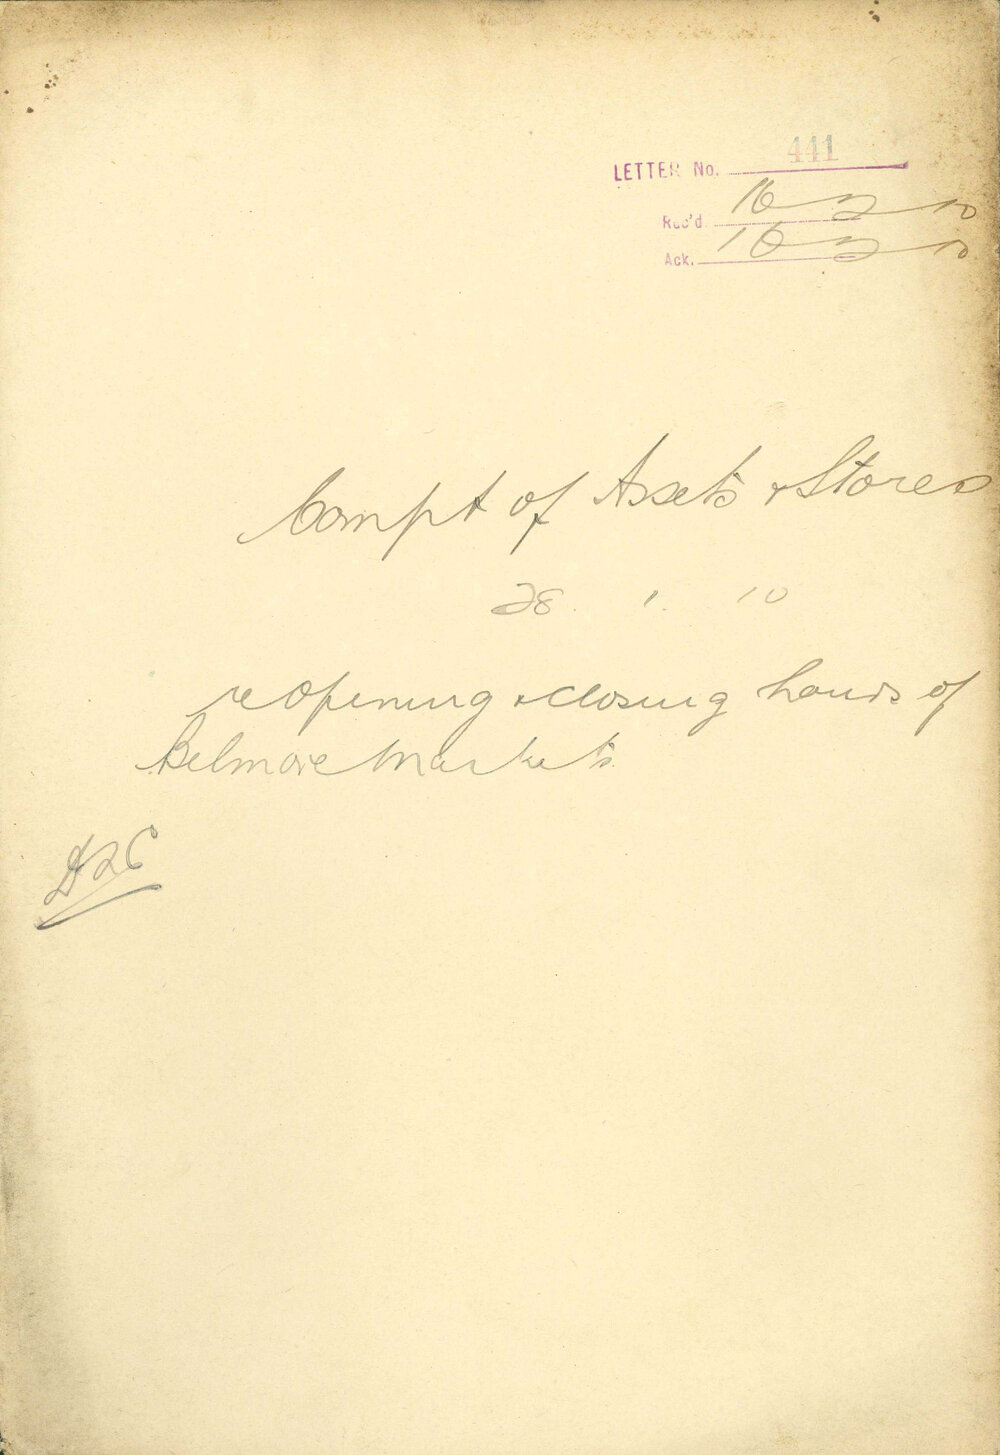 LETTER No. 441
Rec'd. 16 2 10
Ack. 16 2 10
Compt of Assets & Stores
28. 1. 10
re opening & closing hours of
Belmore Markets.